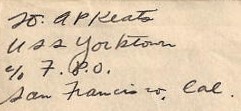 Lt. A P Keats
USS Yorktown
c/o F.P.O.
San Francisco, Cal.